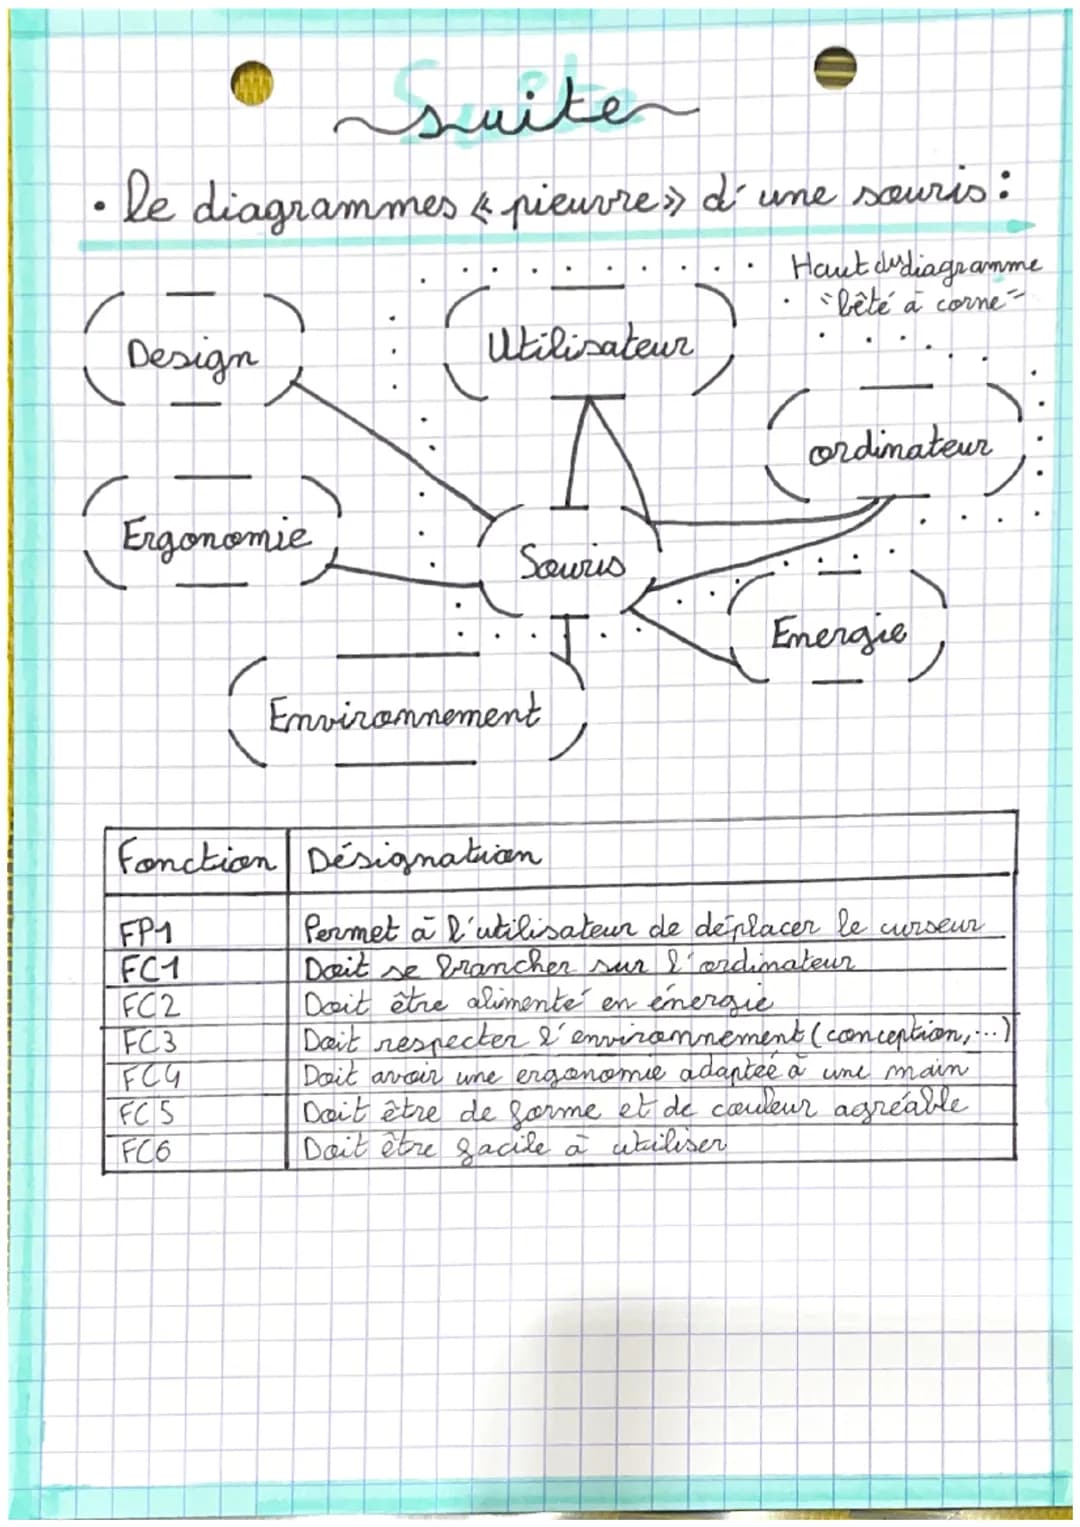 Suite
• Le diagrammes « pieuvre » d'une souris :
Haut du diagramme
"bêté à corne"
Design
Utilisateur
ordinateur
Ergonomie
Souris
Energie
Environnement
Fonction Désignation
FP1 Permet à l'utilisateur de déplacer le curseur
FC1 Doit se brancher sur l'ordinateur
FC2 Doit être alimenté en énergie
FC3 Doit respecter l'environnement (conception,...)
FC4 Doit avoir une ergonomie adaptée à une main
FC5 Doit être de forme et de couleur agréable
FC6 Doit être facile à utiliser